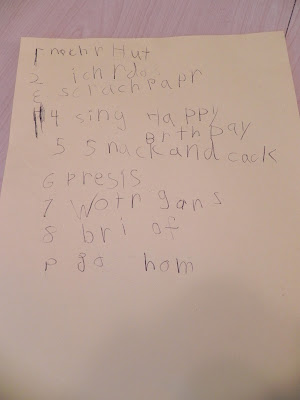 1 nochr Hut
2 ich rdo
3 scrachpapr
4 sing Happy
Brth Day
5 snack and cack
6 presis
7 Wotr gans
8 bri of
9 go hom